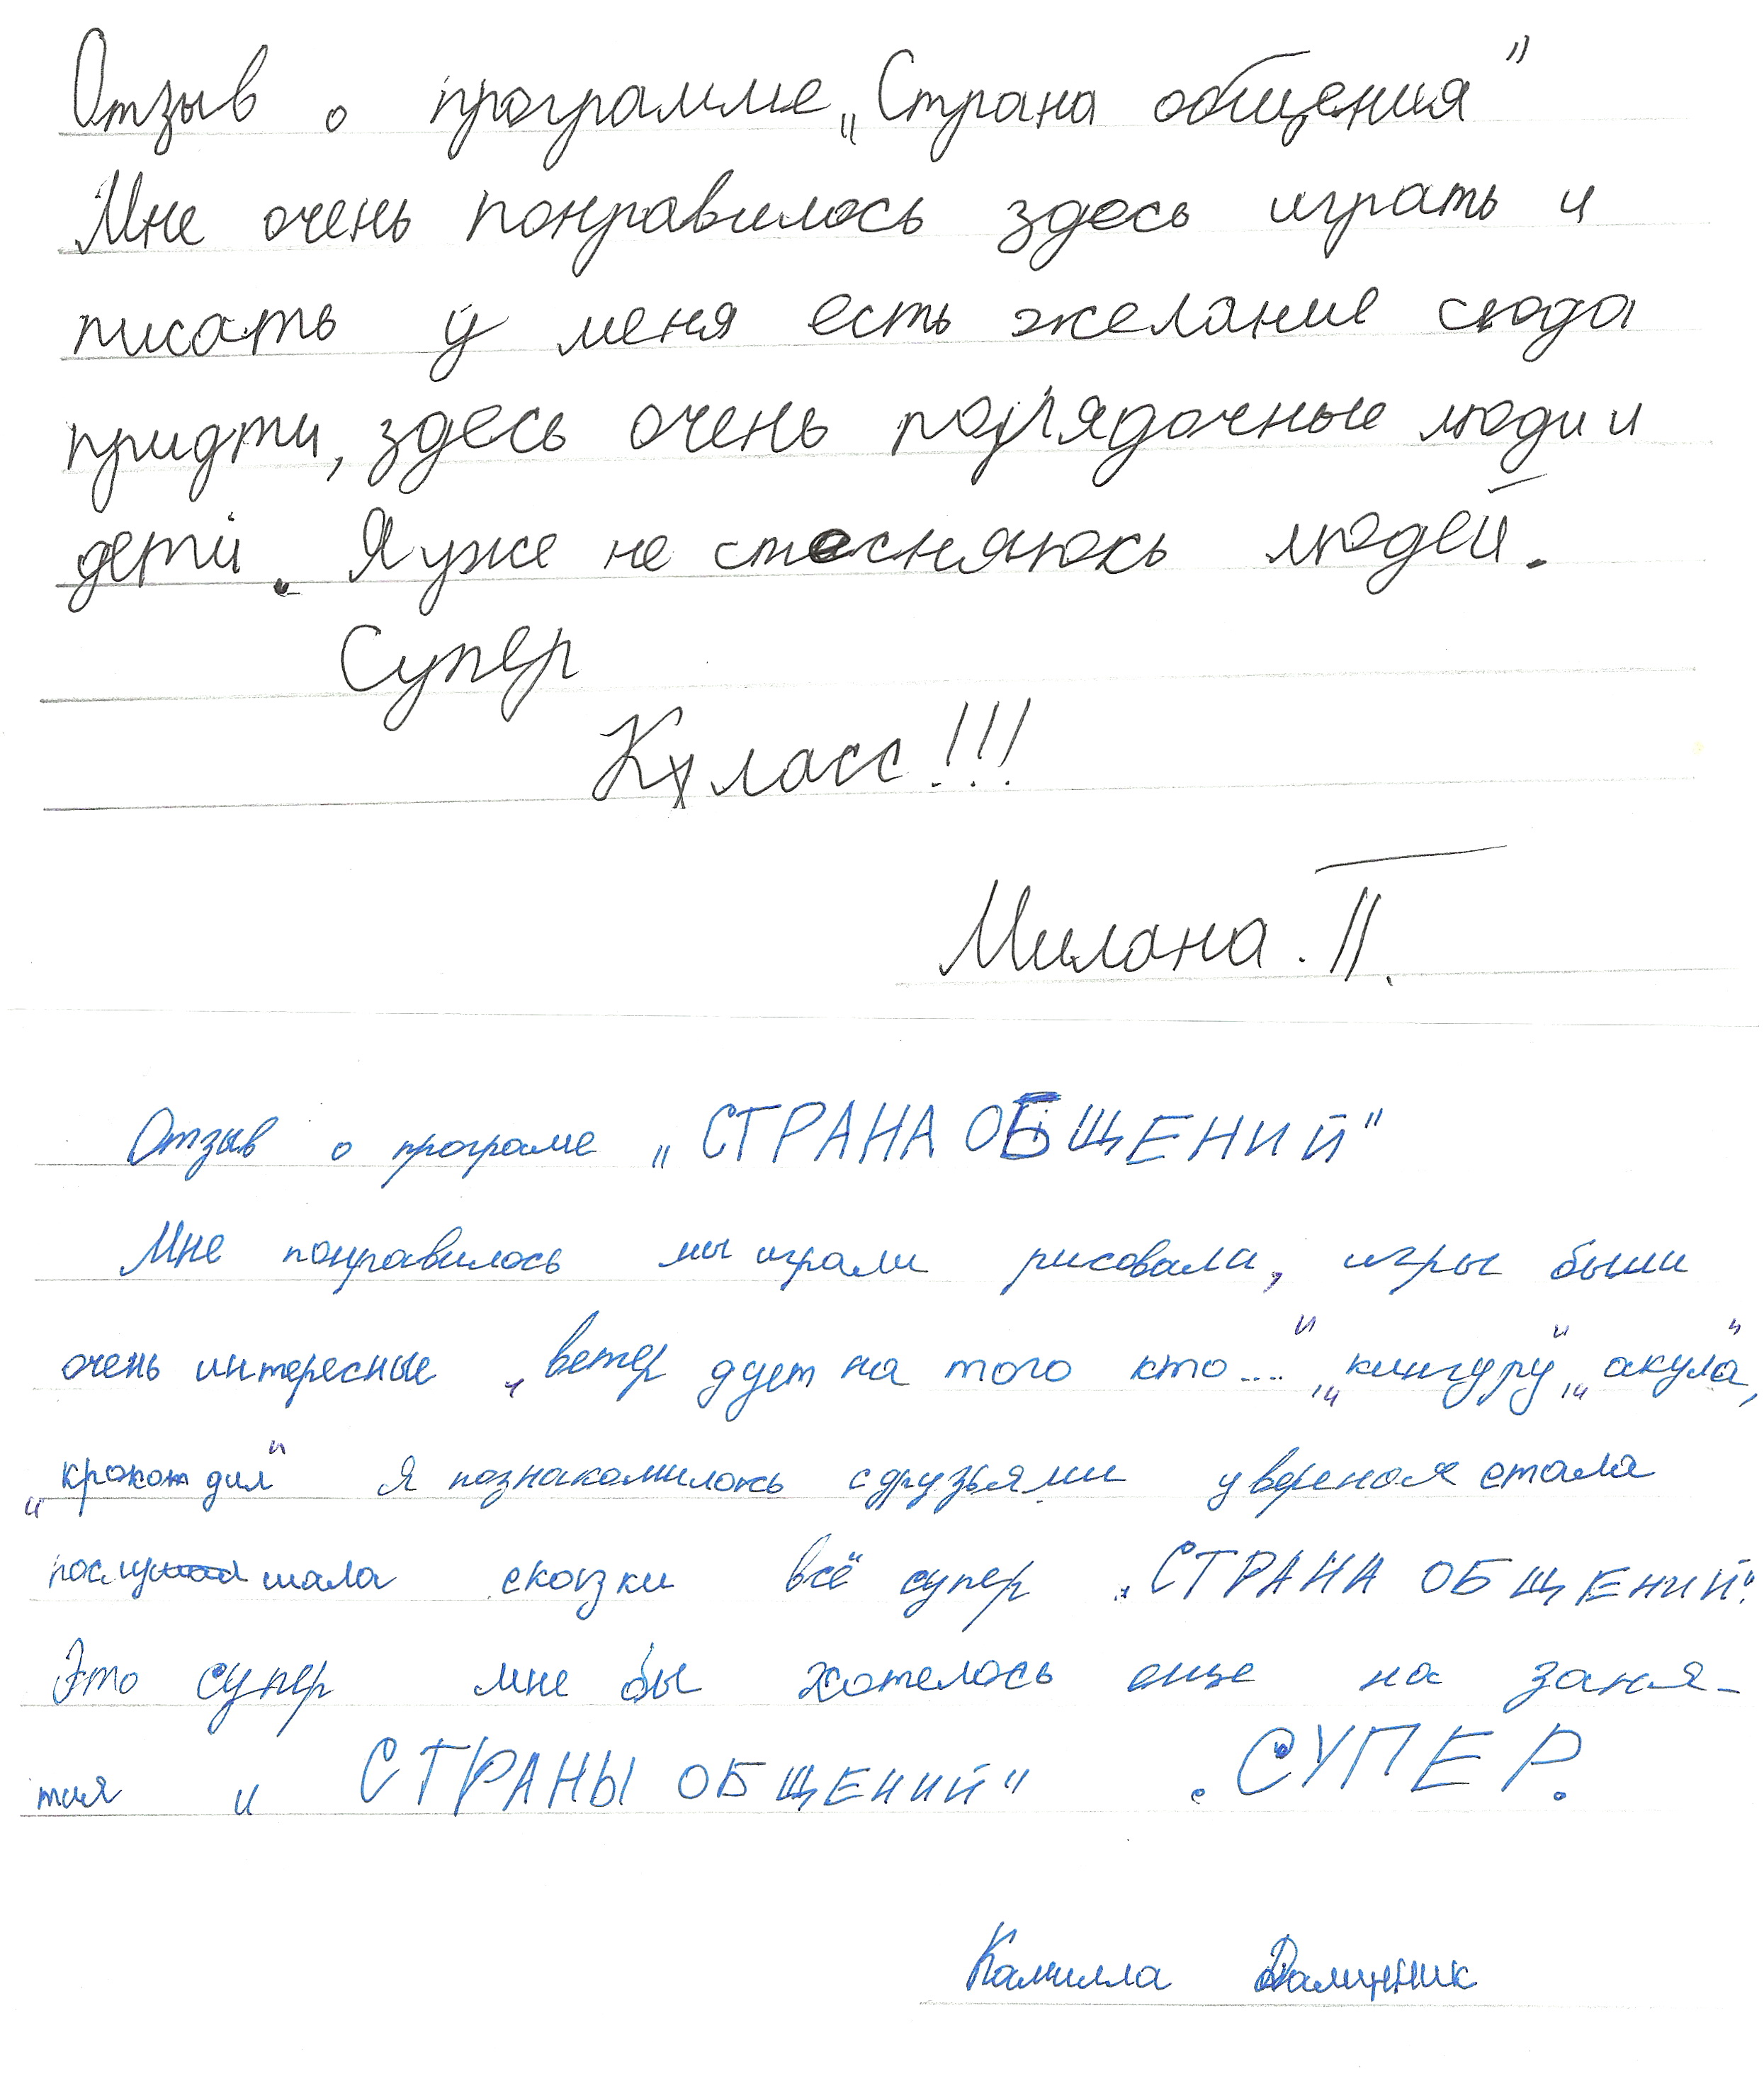 Отзыв о программе „Страна общения"
Мне очень понравилось здесь играть и
писать у меня есть желание сюда
придти, здесь очень порядочные люди и
дети. Я уже не стесняюсь людей.
Супер
Класс!!!
Милана. П.
Отзыв о програме „СТРАНА ОБЩЕНИЙ"
Мне понравилось мы играли рисовали, игры были
очень интересные „ветер дует на того кто...", „кингуру", „акула",
„крокодил" я познакомилась с друзьями увереная стала
послушала сказки всё супер „СТРАНА ОБЩЕНИЙ".
Это супер мне бы хотелось еще на заня-
тия и СТРАНЫ ОБЩЕНИЙ" . СУПЕР.
Камилла